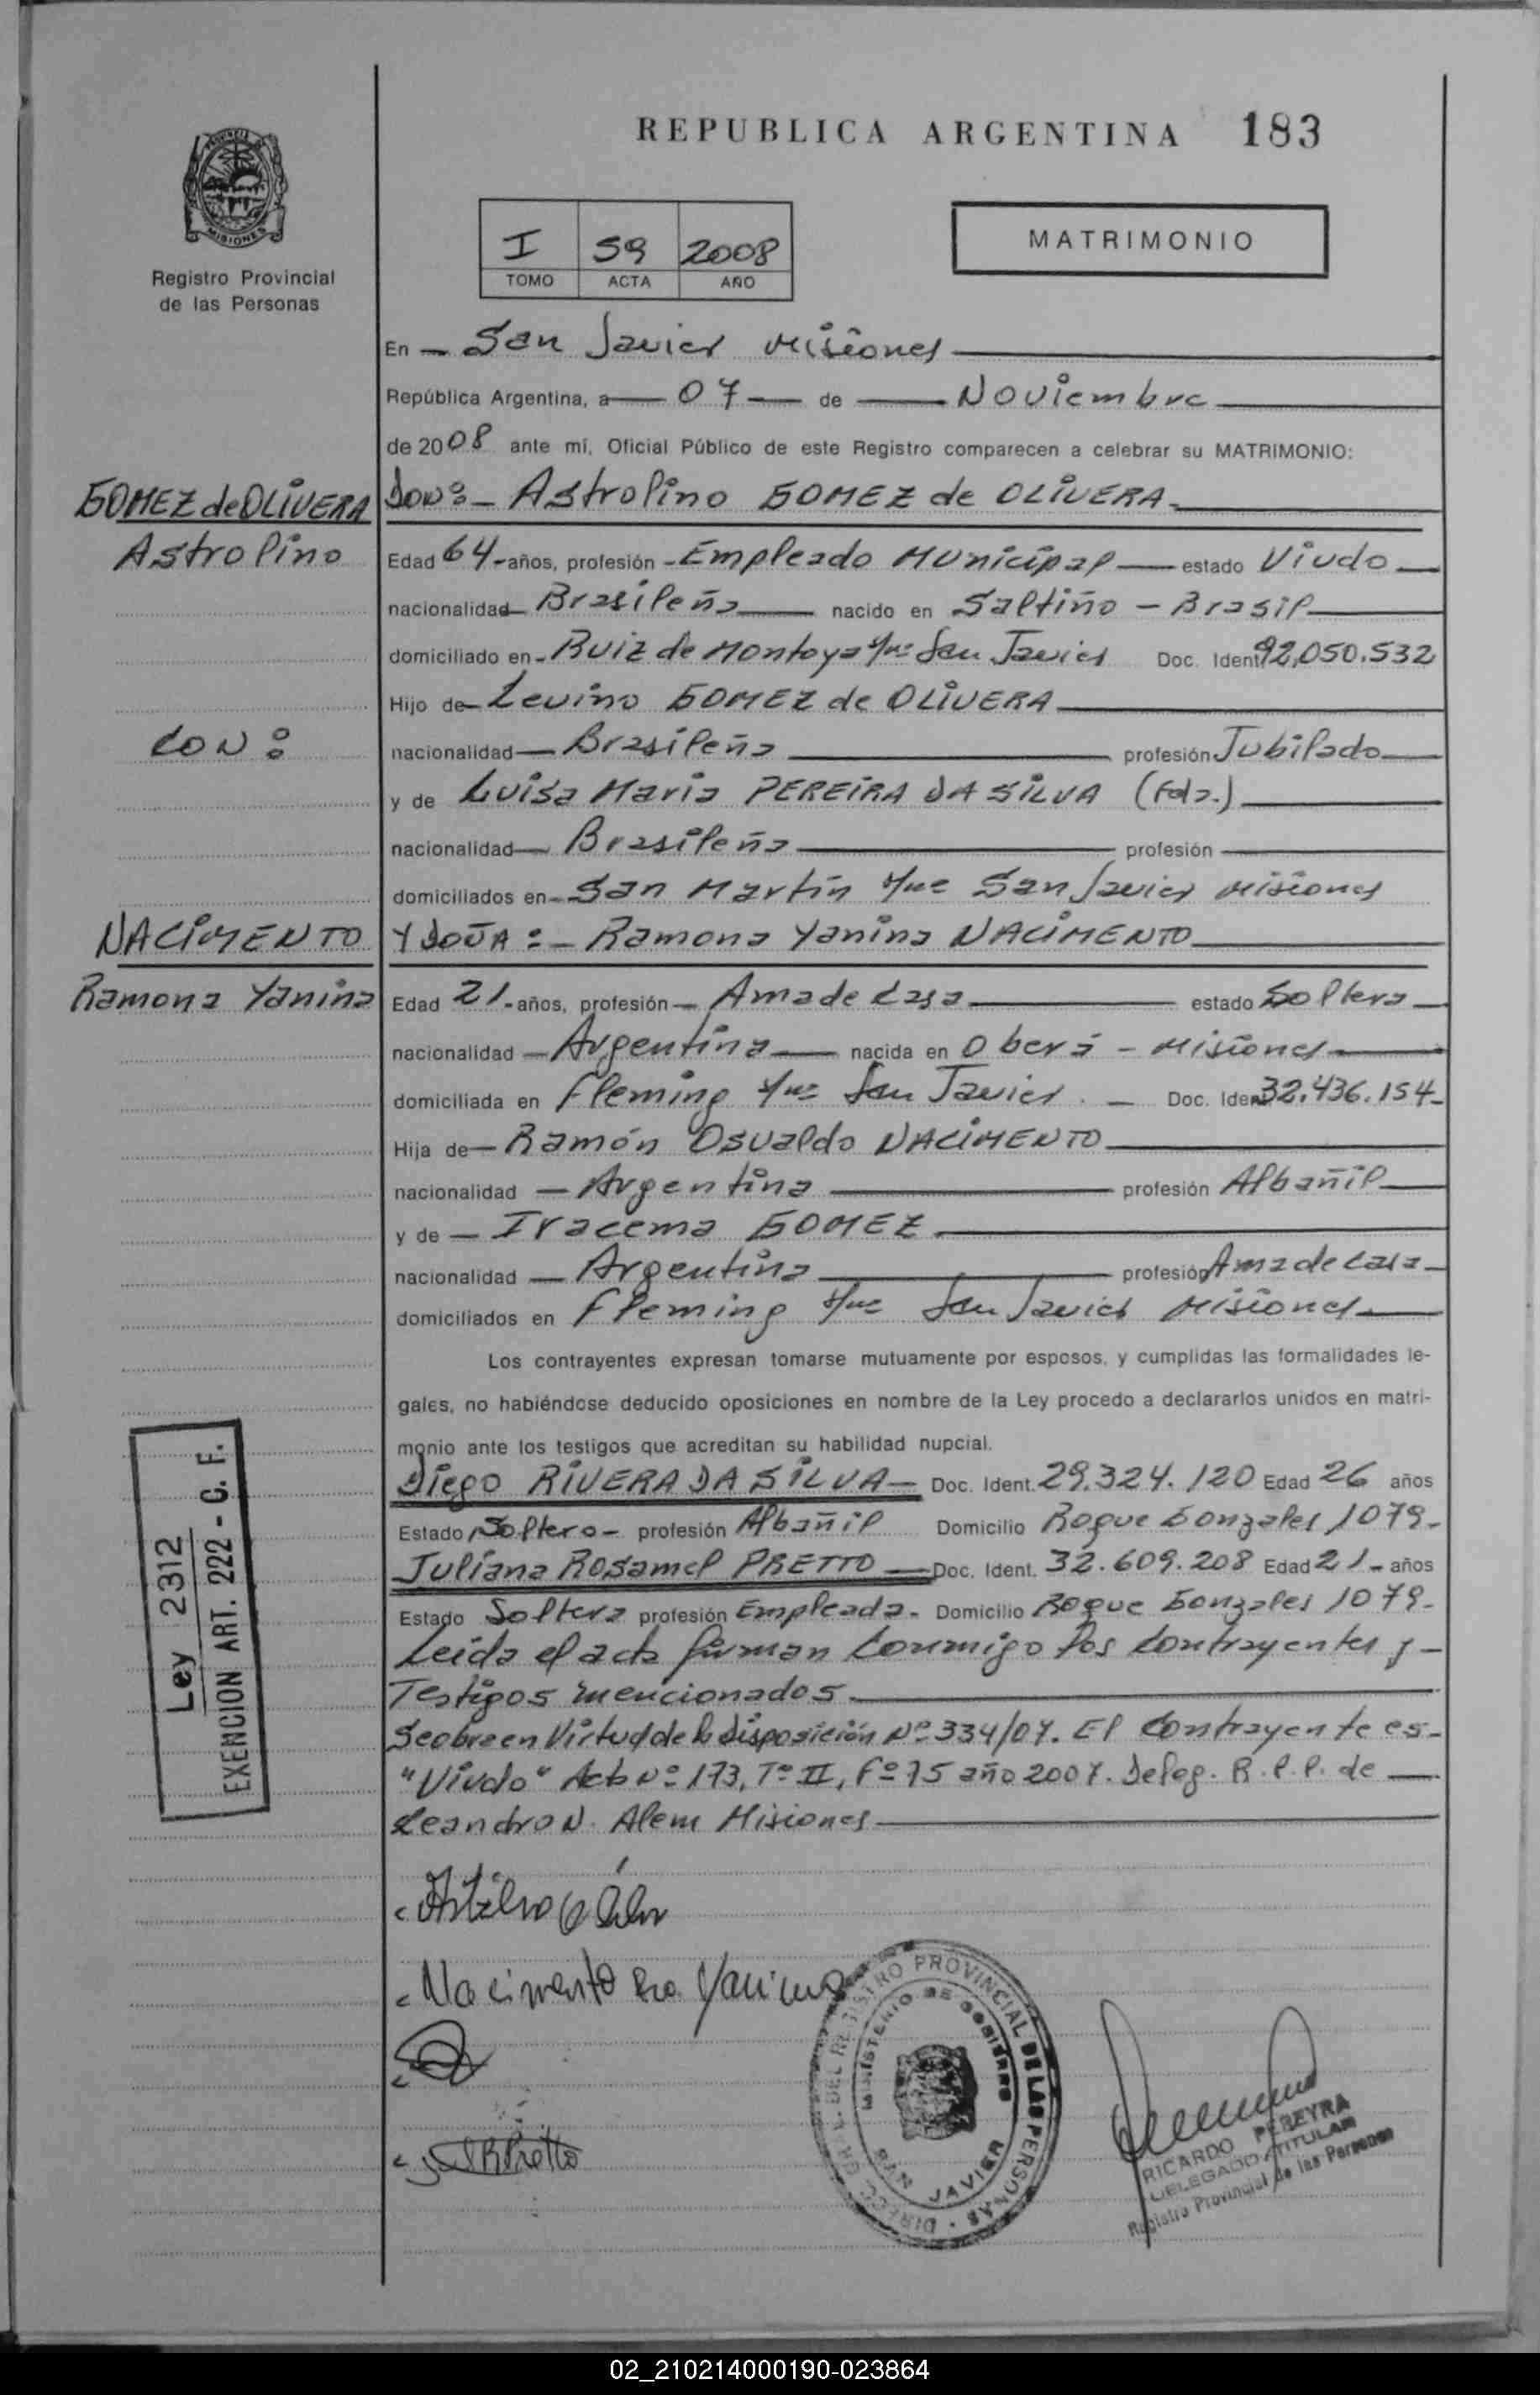 REPUBLICA ARGENTINA 183
PROVINCIA
MISIONES
Registro Provincial
de las Personas
I 59 2008
TOMO ACTA AÑO
MATRIMONIO
En San Javier Misiones
República Argentina, a 07 de Noviembre
de 2008 ante mi, Oficial Público de este Registro comparecen a celebrar su MATRIMONIO:
GOMEZ de OLIVERA
Astrolino
Don:- Astrolino GOMEZ de OLIVERA
Edad 64 años, profesión Empleado Municipal estado Viudo
nacionalidad Brasileña nacido en Saltiño - Brasil
domiciliado en Ruiz de Montoya s/nº San Javier Doc. Ident. 92.050.532
Hijo de Levino GOMEZ de OLIVERA
CON:
nacionalidad Brasileña profesión Jubilado
y de Luisa Maria PEREIRA DA SILVA (Fda.)
nacionalidad Brasileña profesión
domiciliados en San Martín s/nº San Javier Misiones
NACIMENTO
Ramona Yanina
Y DOÑA:- Ramona Yanina NACIMENTO
Edad 21 años, profesión Ama de Casa estado Soltera
nacionalidad Argentina nacida en Oberá - Misiones
domiciliada en Fleming s/nº San Javier. - Doc. Ident. 32.436.154-
Hija de Ramón Osvaldo NACIMENTO
nacionalidad Argentina profesión Albañil
y de Iracema GOMEZ
nacionalidad Argentina profesión Ama de Casa
domiciliados en Fleming s/nº San Javier Misiones
Los contrayentes expresan tomarse mutuamente por esposos, y cumplidas las formalidades le-
gales, no habiéndose deducido oposiciones en nombre de la Ley procedo a declararlos unidos en matri-
monio ante los testigos que acreditan su habilidad nupcial.
Diego RIVERA DA SILVA Doc. Ident. 29.324.120 Edad 26 años
Estado Soltero profesión Albañil Domicilio Roque Gonzales 1079-
Juliana Rosamel PRETTO Doc. Ident. 32.609.208 Edad 21 años
Estado Soltera profesión Empleada. Domicilio Roque Gonzales 1079-
Leida el acta firman Conmigo los Contrayentes y
Testigos mencionados
Se obre en Virtud de la Disposición Nº 334/07. El Contrayente es-
"Viudo" Acta Nº 173, Tº II, Fº 75 año 2007. Deleg. R.P.P. de
Leandro N. Alem Misiones
Ley 2312
EXENCION ART. 222 - C. F.
Nacimento Ra. Yanina
JRPretto
DIREC. GRAL. DEL REGISTRO PROVINCIAL DE LAS PERSONAS
MINISTERIO DE GOBIERNO
SAN JAVIER
RICARDO PEREYRA
DELEGADO TITULAR
Registro Provincial de las Personas
02_210214000190-023864